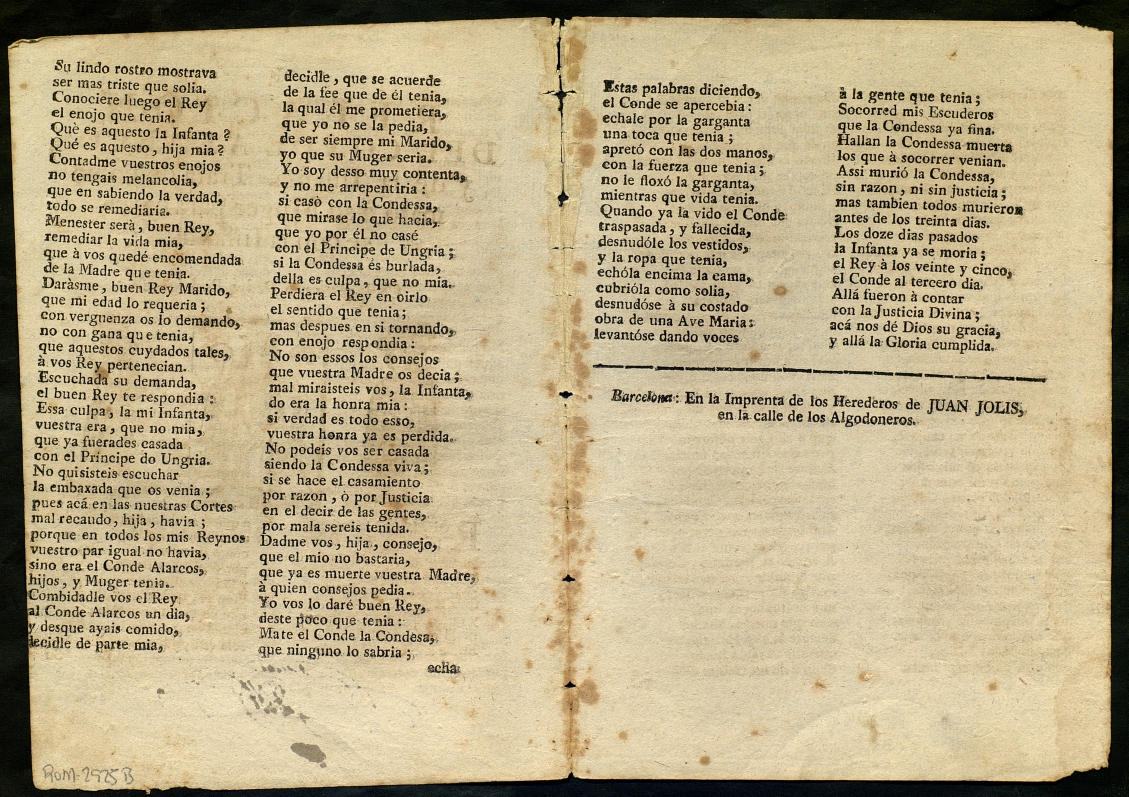 Su lindo rostro mostrava
ser mas triste que solia.
Conociere luego el Rey
el enojo que tenia.
Què es aquesto la Infanta ?
Qué es aquesto, hija mia ?
Contadme vuestros enojos
no tengais melancolia,
que en sabiendo la verdad,
todo se remediaria.
Menester serà, buen Rey,
remediar la vida mia,
que à vos quedé encomendada
de la Madre que tenia.
Daràsme, buen Rey Marido,
que mi edad lo requeria ;
con verguenza os lo demando,
no con gana que tenia,
que aquestos cuydados tales,
à vos Rey pertenecian.
Escuchada su demanda,
el buen Rey te respondia :
Essa culpa, la mi Infanta,
vuestra era, que no mia,
que ya fuerades casada
con el Príncipe do Ungria.
No quisisteis escuchar
la embaxada que os venia ;
pues acá en las nuestras Cortes
mal recaudo, hija, havia ;
porque en todos los mis Reynos
vuestro par igual no havia,
sino era el Conde Alarcos,
hijos, y Muger tenia.
Combidadle vos el Rey
al Conde Alarcos un dia,
y desque ayais comido,
decidle de parte mia,
decidle, que se acuerde
de la fee que de él tenia,
la qual él me prometiera,
que yo no se la pedia,
de ser siempre mi Marido,
yo que su Muger seria.
Yo soy desso muy contenta,
y no me arrepentiria :
si casò con la Condessa,
que mirase lo que hacia,
que yo por él no casé
con el Principe de Ungria ;
si la Condessa és burlada,
della es culpa, que no mia.
Perdiera el Rey en oirlo
el sentido que tenia ;
mas despues en si tornando,
con enojo respondia :
No son essos los consejos
que vuestra Madre os decia ;
mal miraisteis vos, la Infanta,
do era la honra mia :
si verdad es todo esso,
vuestra honra ya es perdida.
No podeis vos ser casada
siendo la Condessa viva ;
si se hace el casamiento
por razon, ò por Justicia
en el decir de las gentes,
por mala sereis tenida.
Dadme vos, hija, consejo,
que el mio no bastaria,
que ya es muerte vuestra Madre,
à quien consejos pedia.
Yo vos lo daré buen Rey,
deste poco que tenia :
Mate el Conde la Condesa,
que ninguno lo sabria ;
echa
Estas palabras diciendo,
el Conde se apercebia :
echale por la garganta
una toca que tenia ;
apretó con las dos manos,
con la fuerza que tenia ;
no le floxó la garganta,
mientras que vida tenia.
Quando ya la vido el Conde
traspasada, y fallecida,
desnudóle los vestidos,
y la ropa que tenia,
echóla encima la cama,
cubrióla como solia,
desnudóse à su costado
obra de una Ave Maria :
levantóse dando voces
à la gente que tenia ;
Socorred mis Escuderos
que la Condessa ya fina.
Hallan la Condessa muerta
los que à socorrer venian.
Assi murió la Condessa,
sin razon, ni sin justicia ;
mas tambien todos murieron
antes de los treinta dias.
Los doze dias pasados
la Infanta ya se moria ;
el Rey à los veinte y cinco,
el Conde al tercero dia.
Allá fueron à contar
con la Justicia Divina ;
acá nos dé Dios su gracia,
y allá la Gloria cumplida.
Barcelona: En la Imprenta de los Herederos de JUAN JOLIS,
en la calle de los Algodoneros.
ROM-2925B